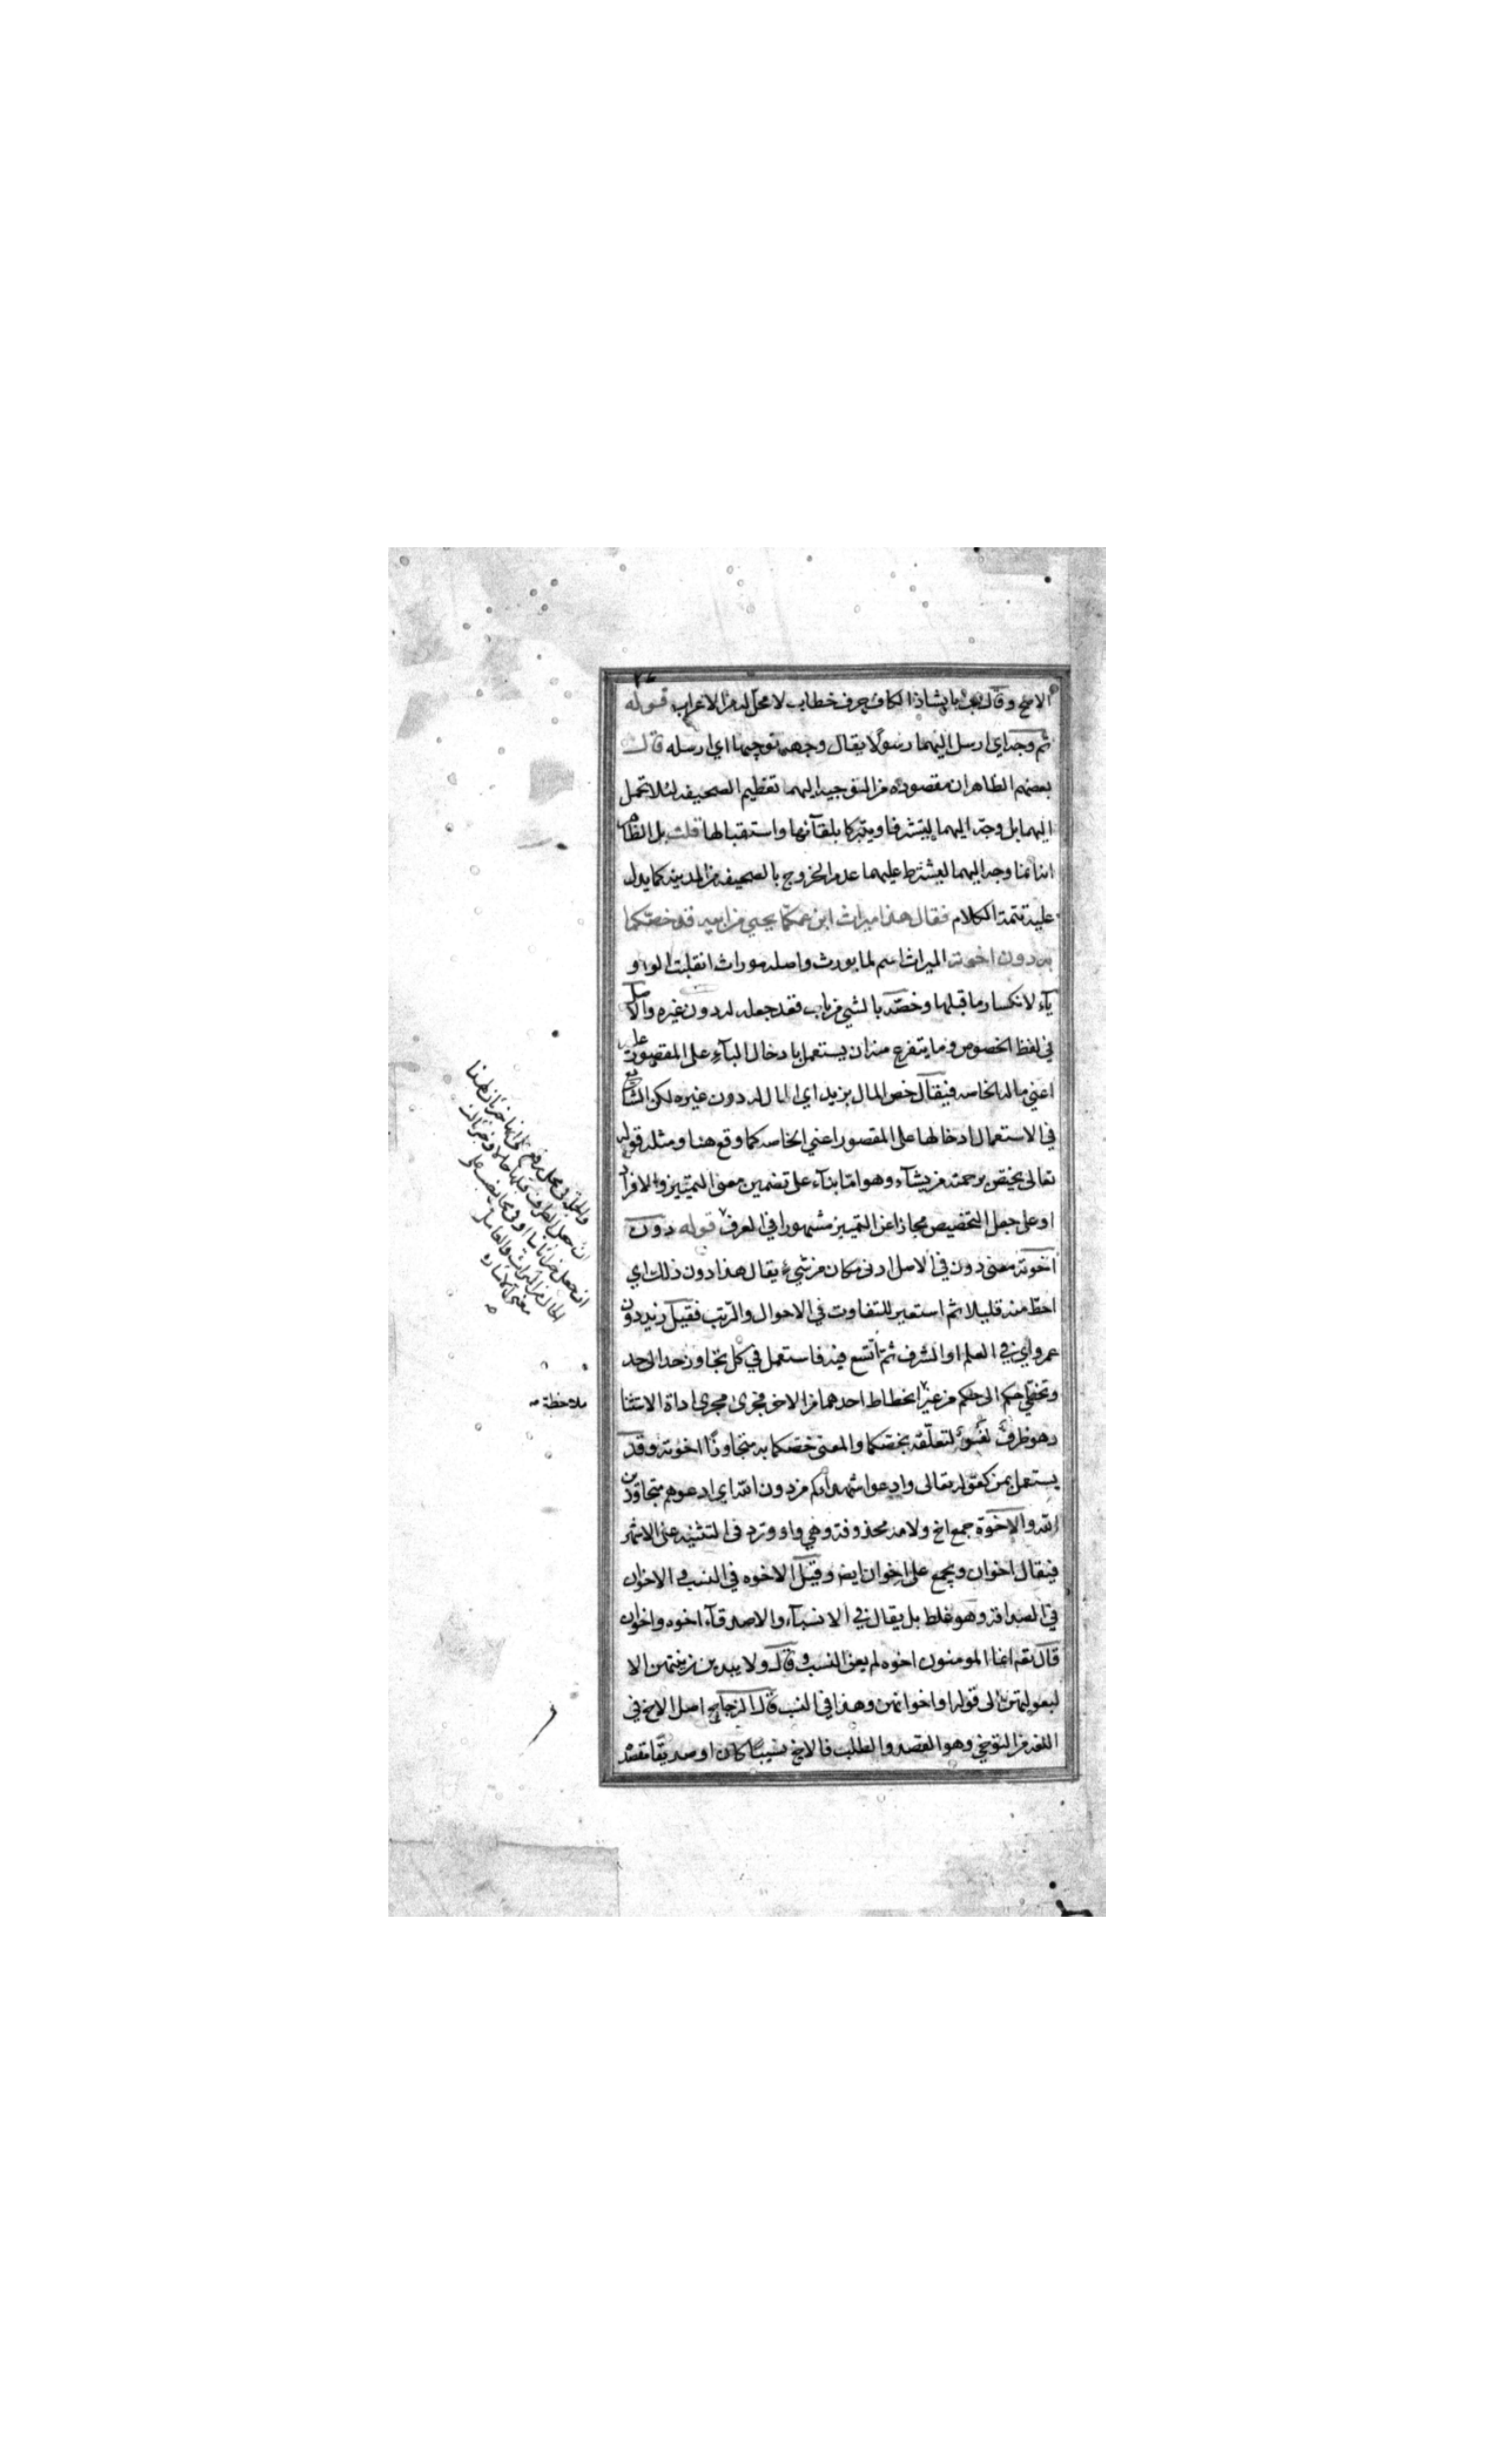 الاصح وقال ابن بابشاذ الكاف حرف خطاب لا محل له من الاعراب قوله
ثم وجه اي ارسل اليهما رسولا يقال وجهه توجيها اي ارسله قال
بعضهم الظاهر ان مقصوده من التوجيه اليهما تعظيم الصحيفه لئلا تحمل
اليهما بل وجه اليهما ليتشرفا ويتبركا بلقآئها واستقبالها قلت بل الظاهر
انه انما وجه اليهما ليشترط عليهما عدم الخروج بالصحيفه من المدينه كما يدل
عليه تتمة الكلام فقال هذا ميراث ابن عمكما يحيى من ابيه قد خصكما
به دون اخوته الميراث اسم لما يورث واصله موراث انقلبت الواو
يآء لانكسار ما قبلها وخصه بالشي من باب فقد جعله له دون غيره والاصل
في لفظ الخصوص وما يتفرع منه ان يستعمل بادخال البآء على المقصور عليه
اعني ماله الخاصه فيقال خص المال بزيد اي المال له دون غيره لكن الشايع
في الاستعمال ادخالها على المقصور اعني الخاصه كما وقع هنا ومثله قوله
تعالى يختص برحمته من يشآء وهو اما بنآء على تضمين معنى التمييز والافراد
او على جعل التخصيص مجازا عن التمييز مشهورا في العرف قوله دون
اخوته معنى دون في الاصل ادنى مكان من شيء يقال هذا دون ذلك اي
احط منه قليلا ثم استعير للتفاوت في الاحوال والرتب فقيل زيد دون
عمرو اي في العلم او الشرف ثم اتسع فيه فاستعمل في كل تجاوز حد الى حد
وتخطي حكم الى حكم من غير انحطاط احدهما من الاخر فجرى مجرى اداة الاستثنا
وهو ظرف لغو لتعلقه بخصكما والمعنى خصكما به متجاوزا اخوته وقد
يستعمل بمن كقوله تعالى وادعوا شهدآءكم من دون الله اي ادعوهم متجاوزين
الله والاخوة جمع اخ ولامه محذوفة وهي واو وترد في التثنيه على الاشهر
فيقال اخوان ويجمع على اخوان ايض وقيل الاخوه في النسب والاخوان
في الصداقة وهو غلط بل يقال في الانسبآء والاصدقآء اخوه واخوان
قال تعم انما المومنون اخوه لم يعن النسب وقال ولا يبدين زينتهن الا
لبعولتهن الى قوله او اخوانهن وهذا في النسب قال الزجاج اصل الاخ في
اللغه من التوخي وهو القصد والطلب فالاخ نسيبا كان او صديقا مقصده
والجملة في محل رفع
ان جعل الظرف
ان جعل
الحال من الميراث والعامل
معنى الاشاره
ملاحظة